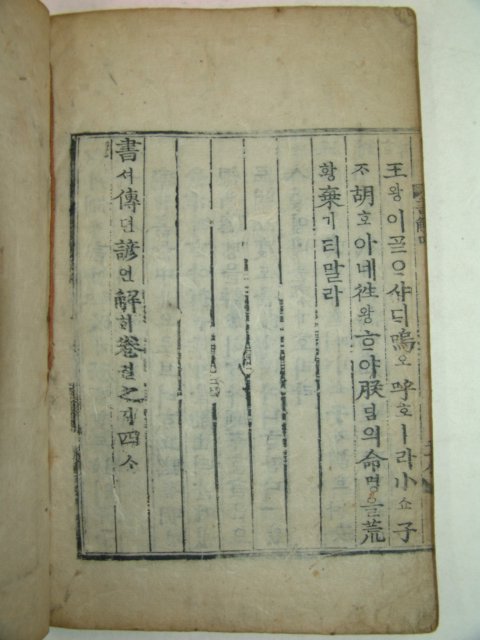 王왕이ᄀᆞᆯᄋᆞ샤ᄃᆡ嗚오呼호ㅣ라小쇼子
ᄌᆞ胡호아네徃왕ᄒᆞ야朕딤의命명을荒
황棄기티말라
書셔傳뎐諺언解ᄒᆡ卷권之지四ᄉᆞ